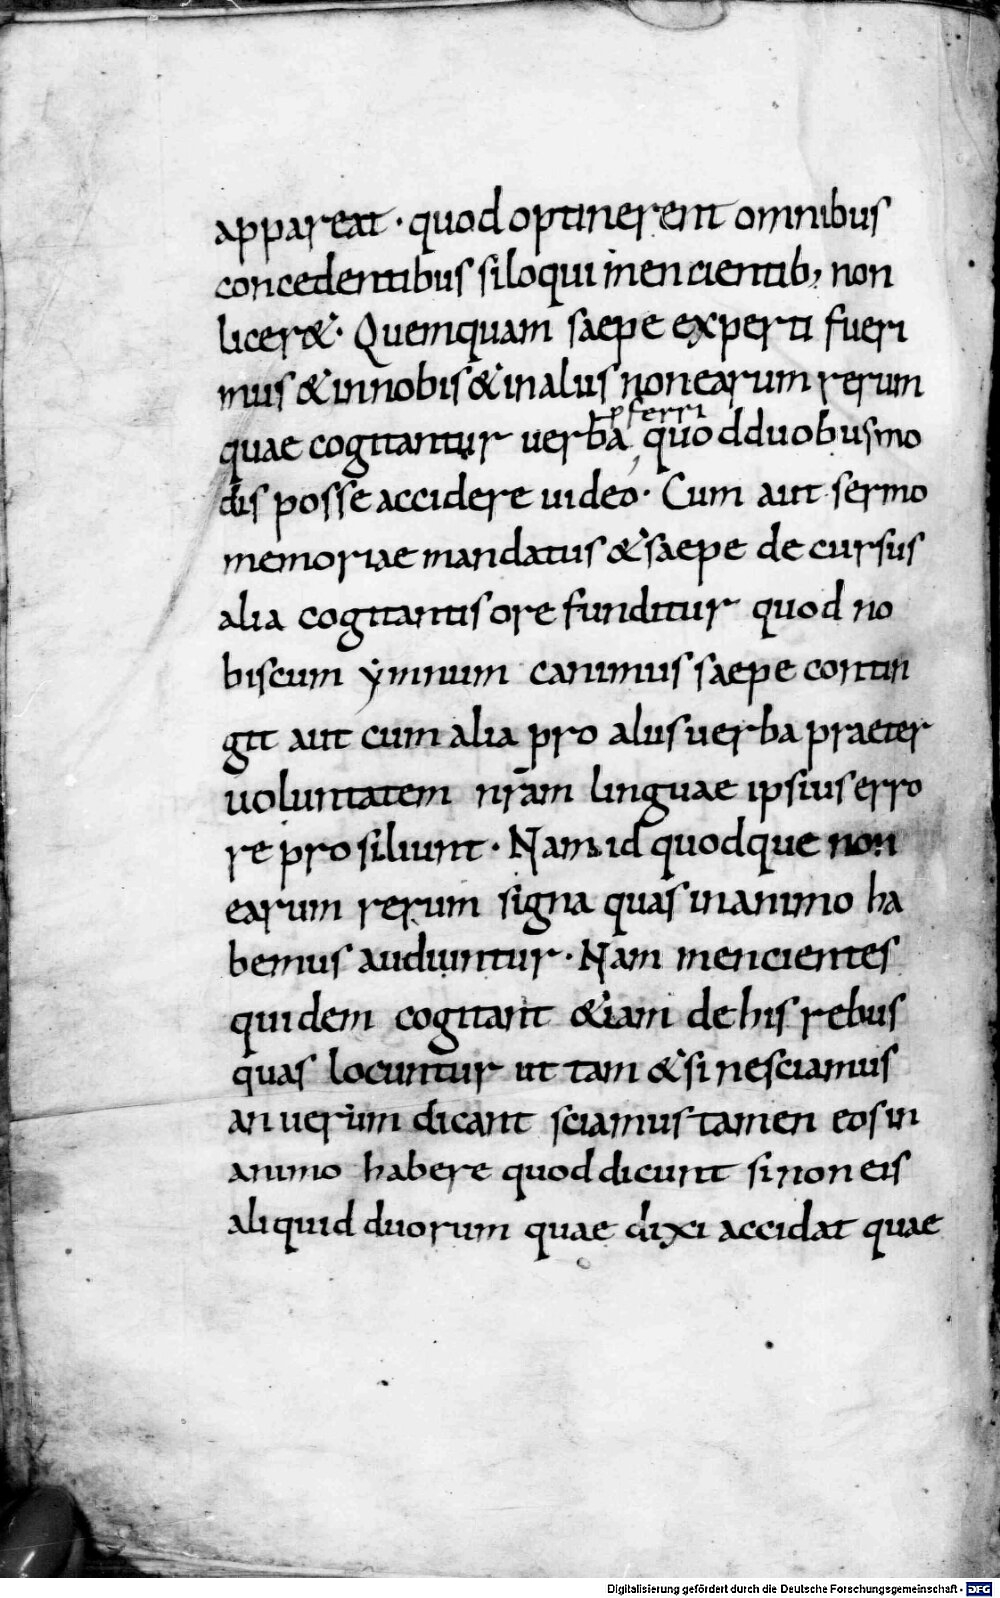 appareat · quod optinerent omnibus
concedentibus si loqui mencientib; non
licer&· Quemquam saepe experti fueri
mus & in nobis & in aliis non earum rerum
p ferri
quae cogitantur verba, quod duobus mo
dis posse accidere uideo· Cum aut sermo
memoriae mandatus & saepe decursus
alia cogitantis ore funditur quod no
biscum ẏmnum canimus saepe contin
git aut cum alia pro aliis uerba praeter
uoluntatem nr̄am linguae ipsius erro
re prosiliunt · Nam id quodque non
earum rerum signa quas in animo ha
bemus audiuntur · Nam mencientes
quidem cogitant &iam de his rebus
quas locuntur ut tam &si nesciamus
an uerum dicant sciamus tamen eos in
animo habere quod dicunt si non eis
aliquid duorum quae dixi accidat quae
Digitalisierung gefördert durch die Deutsche Forschungsgemeinschaft - DFG